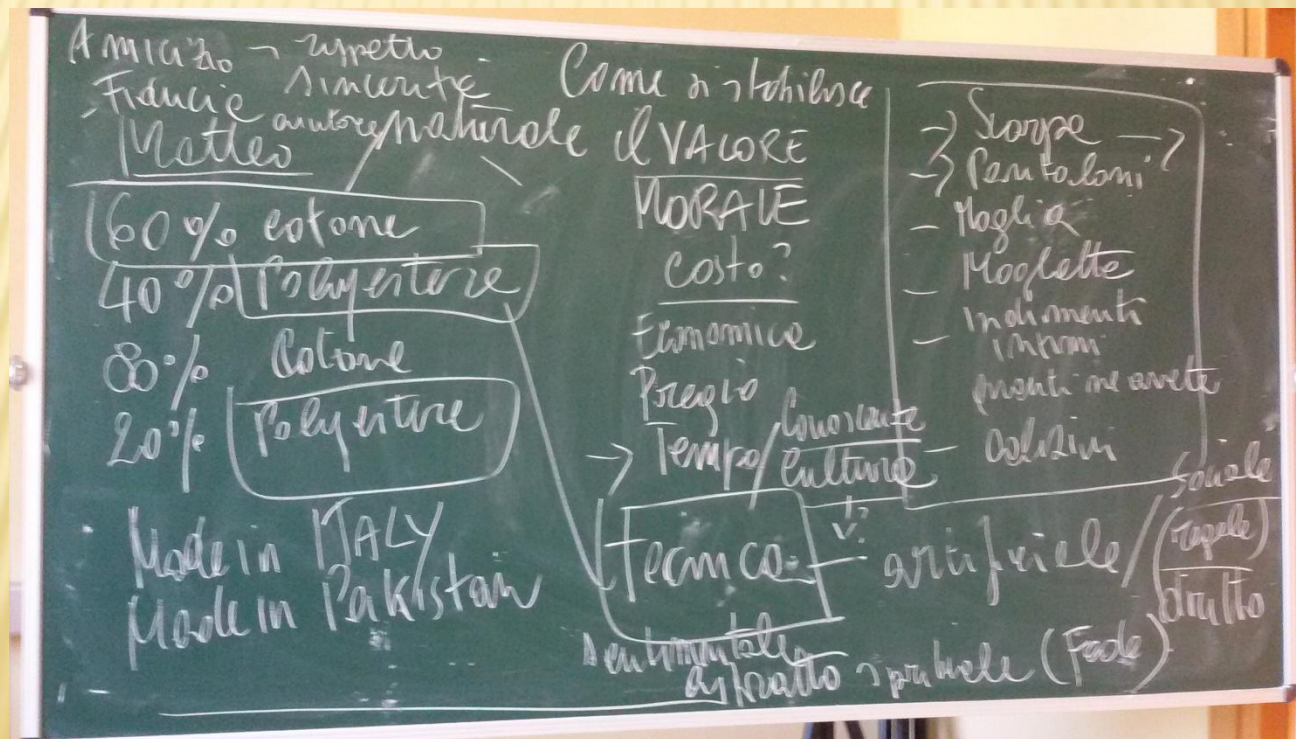 Amicizia → rispetto
Fiducia sincerità
Matteo
naturale
60% cotone
40% Polyestere
80% Cotone
20% Polyestere
Made in ITALY
Made in Pakistan
Come si stabilisce
il VALORE
MORALE
Costo?
Economico
Pregio
→ Tempo / Conoscenze
Cultura
Tecnica
artificiale /
Sentimentale
astratto spirituale (Fede)
→ Scarpe →
→ Pantaloni
- Maglia
- Magliette
- Indumenti
intimi
quanti ne avete
- calzini
Sociale
(regole)
diritto